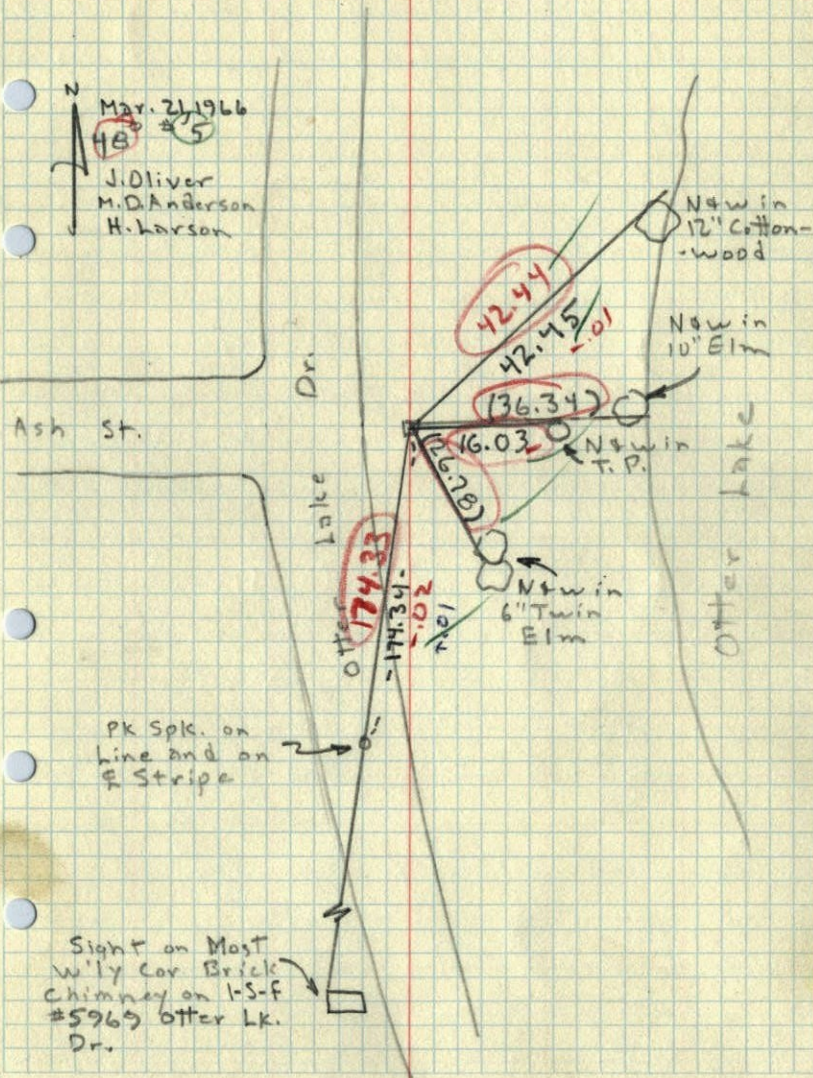 N
Mar. 21, 1966
48° #5
J. Oliver
M.D. Anderson
H. Larson
N&W in
12" Cotton-
-wood
42.44
42.45
-.01
N&W in
10" Elm
(36.34)
Ash St.
16.03
N&W in
T.P.
(26.78)
Otter Lake Dr.
Otter Lake
174.33
-174.34-
-.02
N&W in
6" Twin
Elm
PK Spk. on
Line and on
℄ Stripe
Sight on Most
W'ly Cor Brick
Chimney on 1-S-F
#5969 Otter Lk.
Dr.